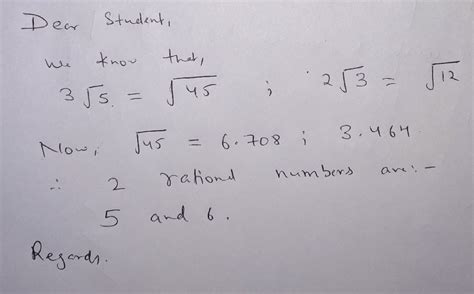 Dear Student,
We know that,
3√5 = √45 ; 2√3 = √12
Now, √45 = 6.708 ; 3.464
∴ 2 rational numbers are:-
5 and 6.
Regards.